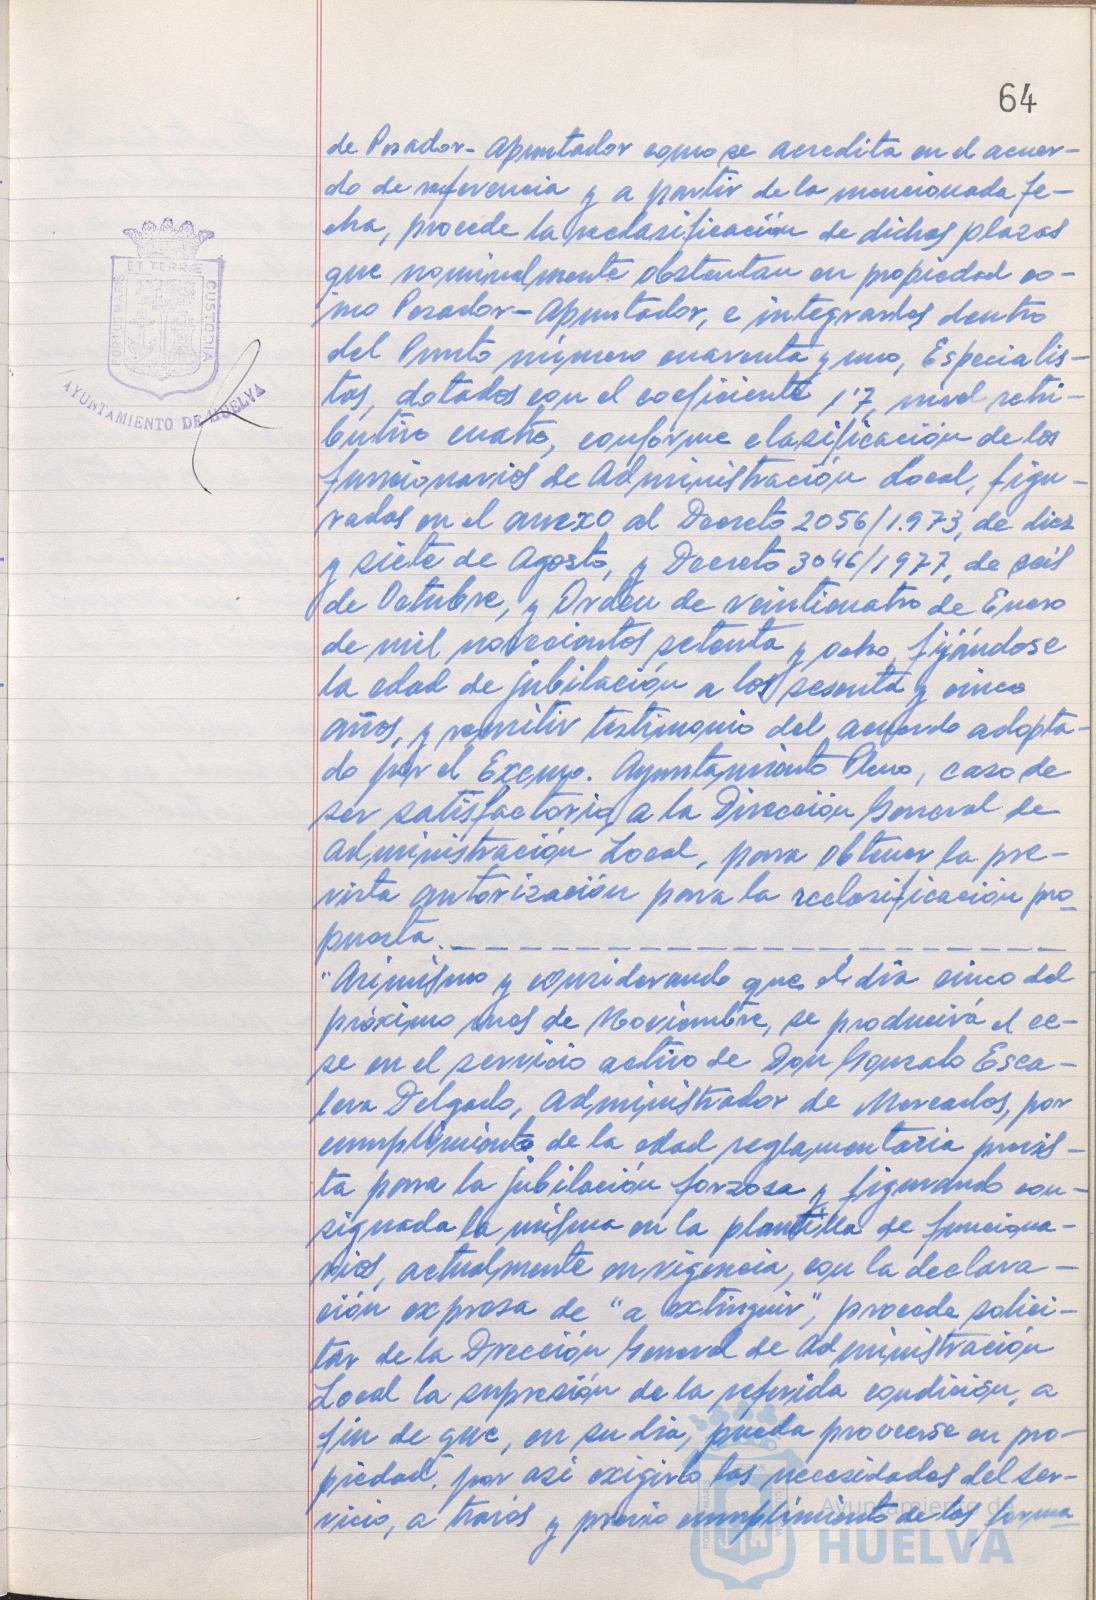 64
de Pesador- Apuntador como se acredita en el acuer-
do de referencia y a partir de la mencionada fe-
cha, procede la reclasificación de dichas plazas
que nominalmente obstentan en propiedad co-
mo Pesador- Apuntador, e integrarlos dentro
del Punto número cuarenta y uno, Especialis-
tas, dotados con el coeficiente 1'7, nivel retri-
butivo cuatro, conforme clasificación de los
funcionarios de Administración Local, figu-
rados en el anexo al Decreto 2056/1.973, de diez
y siete de Agosto, y Decreto 3046/1977, de seis
de Octubre, y Orden de veinticuatro de Enero
de mil novecientos setenta y ocho, fijándose
la edad de jubilación a los sesenta y cinco
años, y remitir testimonio del acuerdo adopta-
do por el Excmo. Ayuntamiento Pleno, caso de
ser satisfactorio, a la Dirección General de
Administración Local, para obtener la pre-
vista autorización para la reclasificación pro
puesta.
"Asimismo y considerando que el día cinco del
próximo mes de Noviembre, se producirá el ce-
se en el servicio activo de Don Gonzalo Esca-
lera Delgado, Administrador de Mercados, por
cumplimiento de la edad reglamentaria previs-
ta para la jubilación forzosa y figurando con-
signada la misma en la plantilla de funciona-
rios, actualmente en vigencia, con la declara-
ción expresa de "a extinguir", procede solici-
tar de la Dirección General de Administración
Local la supresión de la referida condición, a
fin de que, en su día, pueda proveerse en pro-
piedad, por así exigirlo las necesidades del ser-
vicio, a través y previo cumplimiento de las forma
ET TERRÆ
PORTUS MARIS
CUSTODIA
AYUNTAMIENTO DE HUELVA
Ayuntamiento de
HUELVA